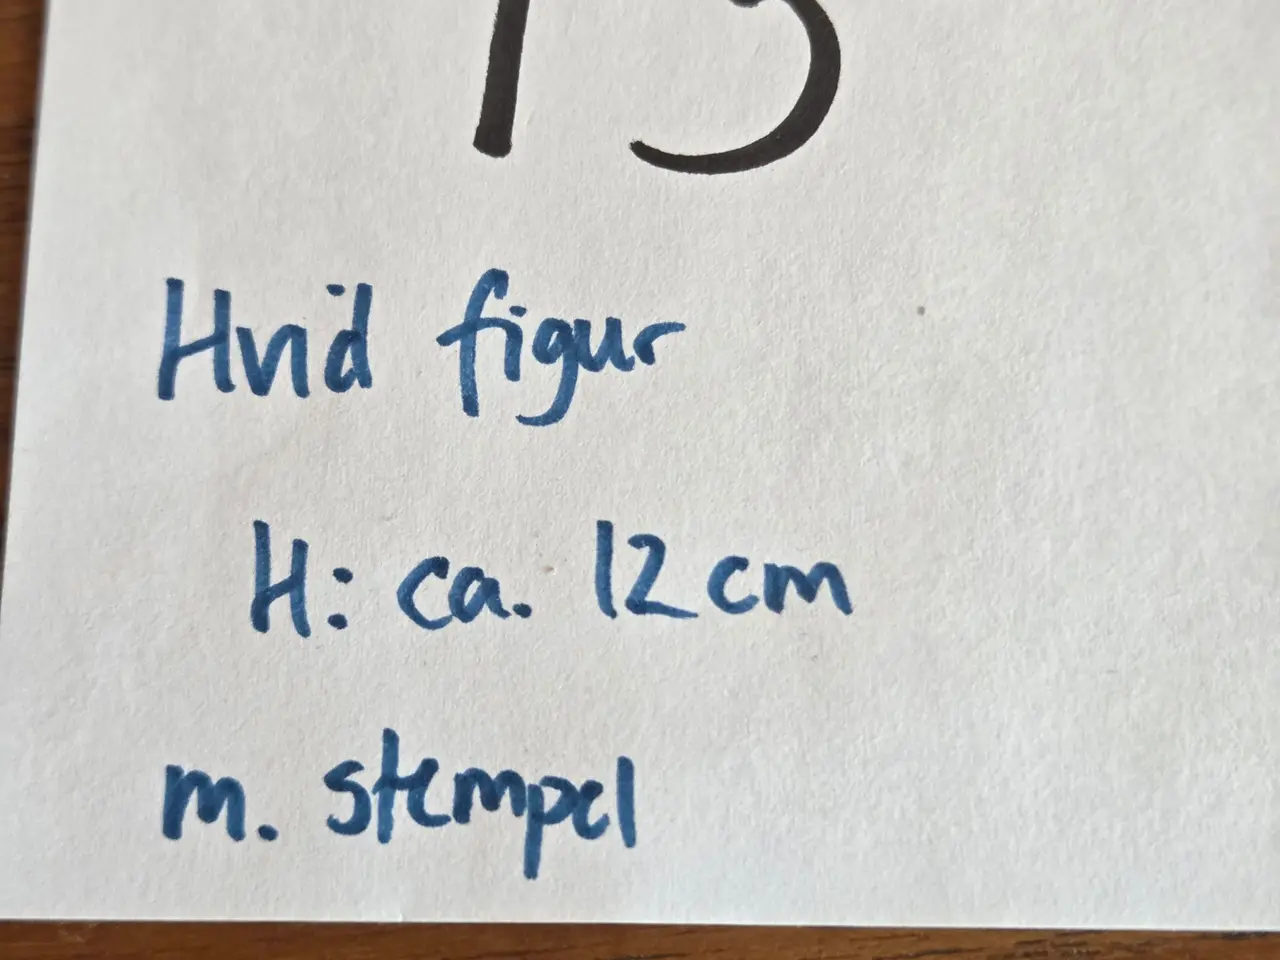 Hvid figur
H: ca. 12 cm
m. stempel